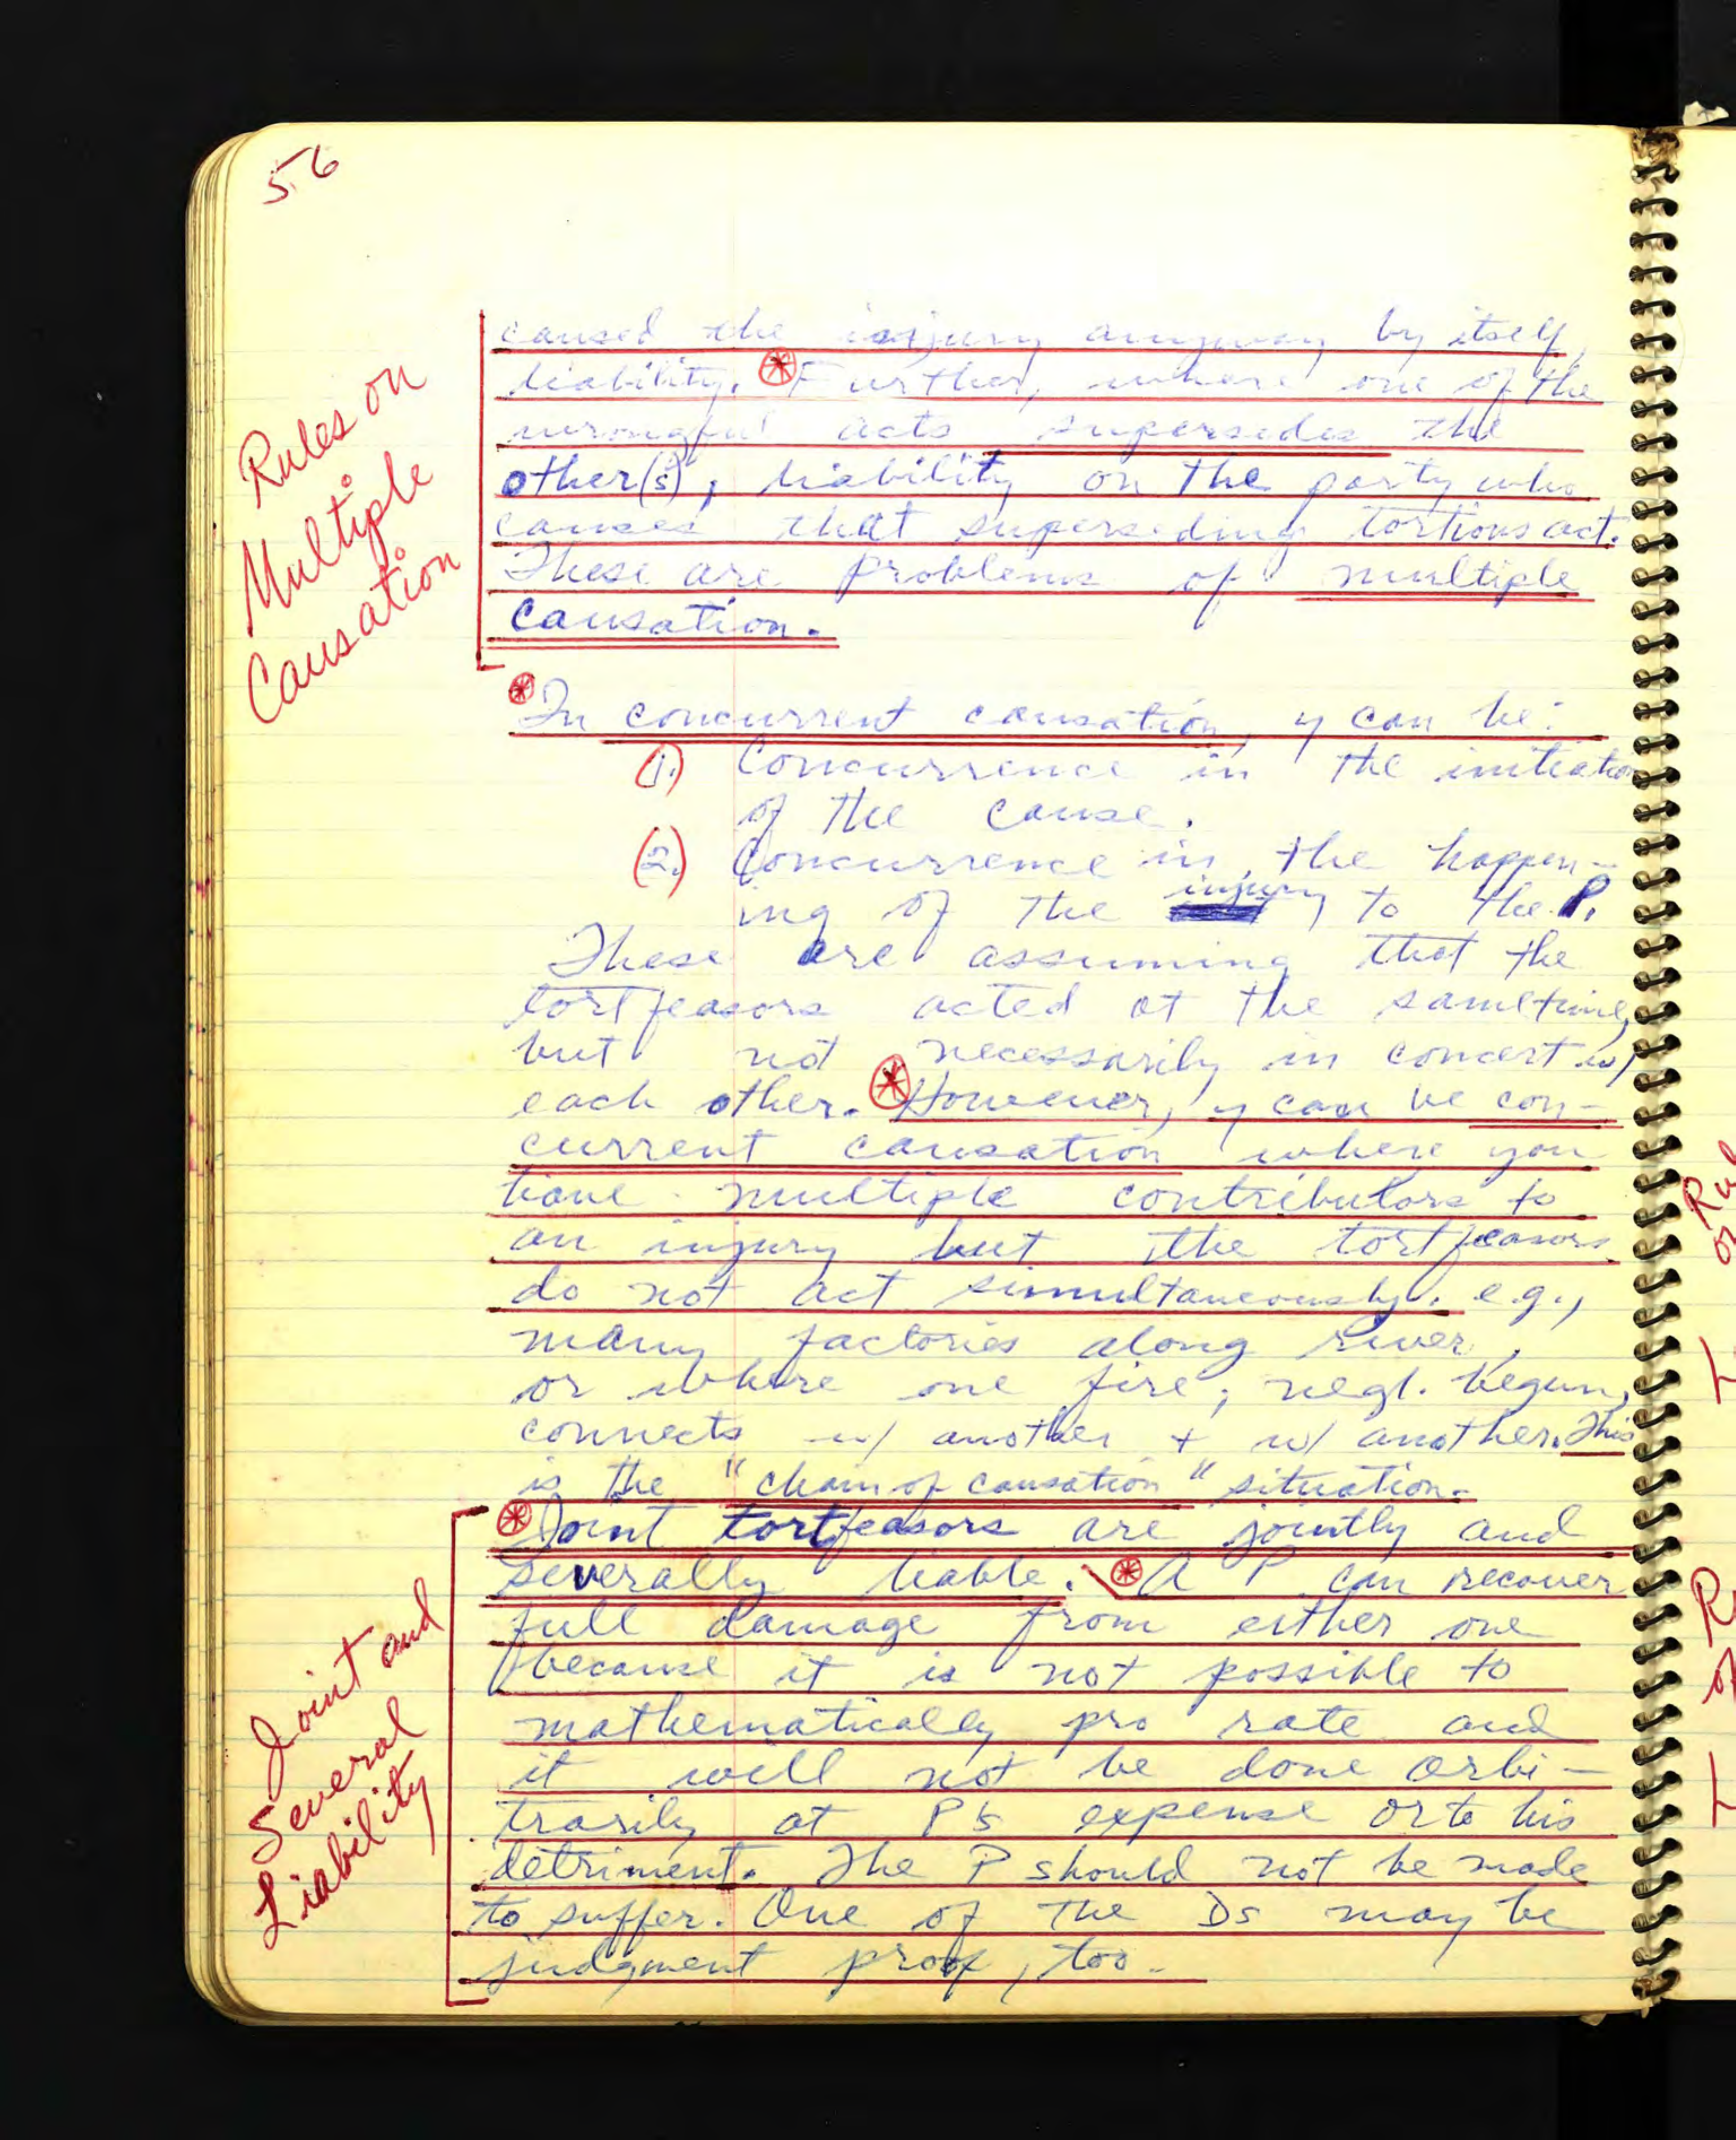 56
Rules on
Multiple
Causation
caused the injury anyway by itself,
liability. * Further, where one of the
wrongful acts supersedes the
other(s), liability on the party who
causes that superseding tortious act.
These are problems of multiple
causation.
* In concurrent causation, y can be:
(1.) Concurrence in the initiation
of the cause.
(2.) Concurrence in the happen-
ing of the injury to the P.
These are assuming that the
tortfeasors acted at the same time,
but not necessarily in concert w/
each other. * However, y can be con-
current causation where you
have multiple contributors to
an injury but the tortfeasors
do not act simultaneously. e.g.,
many factories along river,
or where one fire, negl. begun,
connects w/ another + w/ another. This
is the "chain of causation" situation.
Joint and
Several
Liability
* Joint tortfeasors are jointly and
severally liable. * A P can recover
full damage from either one
because it is not possible to
mathematically pro rate and
it will not be done arbi-
trarily at P's expense or to his
detriment. The P should not be made
to suffer. One of the Ds may be
judgment proof, too.